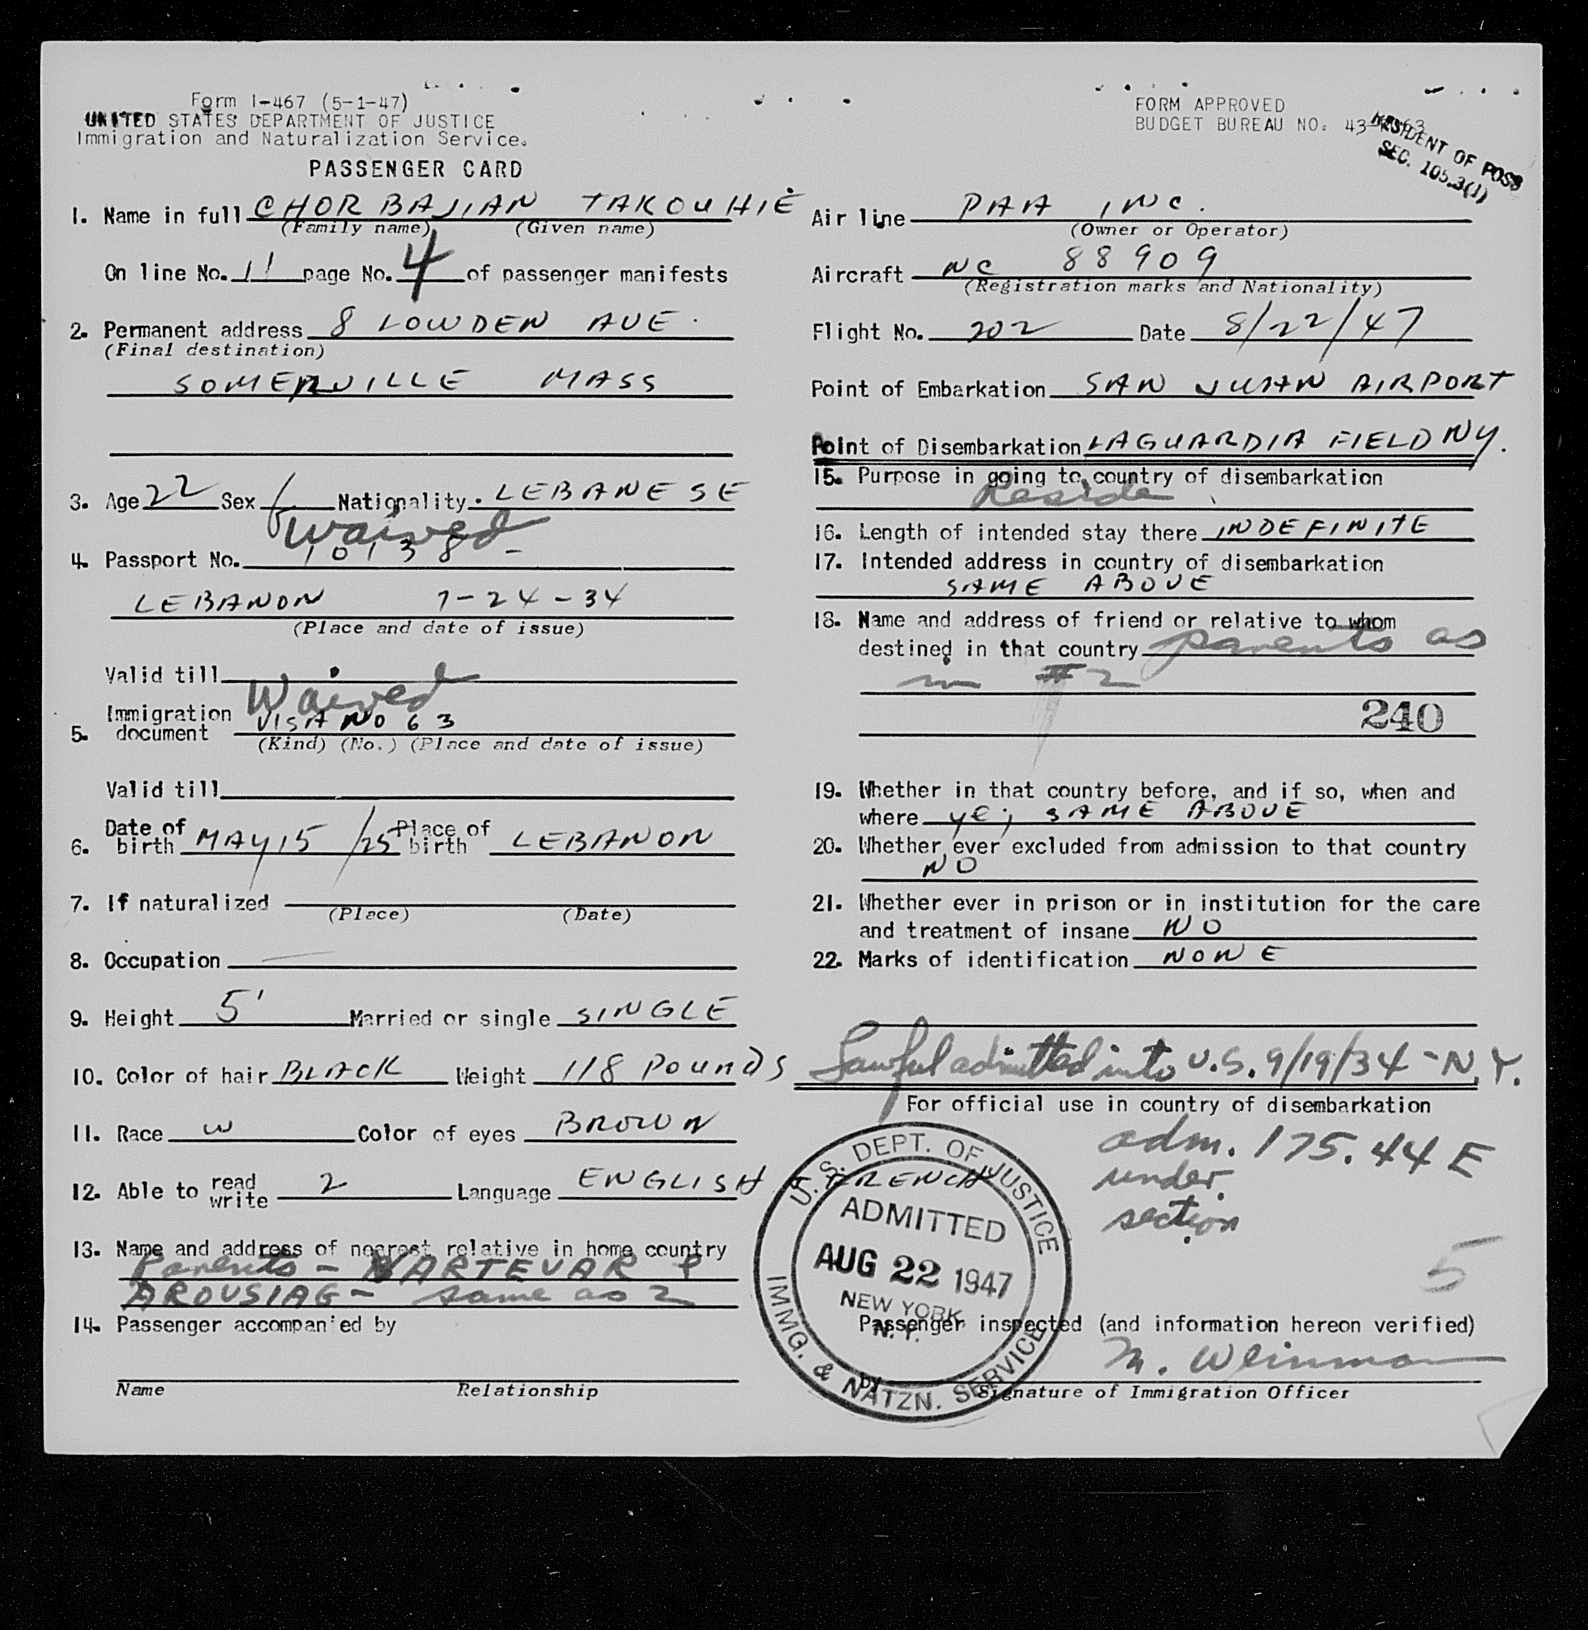 Form I-467 (5-1-47)
UNITED STATES DEPARTMENT OF JUSTICE
Immigration and Naturalization Service.
PASSENGER CARD
FORM APPROVED
BUDGET BUREAU NO. 43-
RESIDENT OF POSS
SEC. 105.3(1)
1. Name in full CHORBAJIAN TAKOUHIE
(Family name) (Given name)
On line No. 11 page No. 4 of passenger manifests
2. Permanent address 8 LOWDEN AVE.
(Final destination)
SOMERVILLE MASS
3. Age 22 Sex f Nationality. LEBANESE
Waived
4. Passport No. 10138 -
LEBANON 7-24-34
(Place and date of issue)
Valid till
Waived
5. Immigration document VISA NO 63
(Kind) (No.) (Place and date of issue)
Valid till
6. Date of birth MAY 15 /25 Place of birth LEBANON
7. If naturalized
(Place) (Date)
8. Occupation
9. Height 5' Married or single SINGLE
10. Color of hair BLACK Weight 118 POUNDS
11. Race W Color of eyes BROWN
12. Able to read write 2 Language ENGLISH FRENCH
13. Name and address of nearest relative in home country
Parents - NARTEVAR &
AROUSIAG - same as 2
14. Passenger accompanied by
Name Relationship
Air line PAA INC.
(Owner or Operator)
Aircraft NC 88909
(Registration marks and Nationality)
Flight No. 202 Date 8/22/47
Point of Embarkation SAN JUAN AIRPORT
Point of Disembarkation LAGUARDIA FIELD NY.
15. Purpose in going to country of disembarkation
Reside
16. Length of intended stay there INDEFINITE
17. Intended address in country of disembarkation
SAME ABOVE
18. Name and address of friend or relative to whom
destined in that country parents as
in #2
240
19. Whether in that country before, and if so, when and
where YES SAME ABOVE
20. Whether ever excluded from admission to that country
NO
21. Whether ever in prison or in institution for the care
and treatment of insane NO
22. Marks of identification NONE
Lawful admitted into U.S. 9/19/34 - N.Y.
For official use in country of disembarkation
adm. 175.44 E
under
section
5
U.S. DEPT. OF JUSTICE
ADMITTED
AUG 22 1947
NEW YORK
N.Y.
IMMG. & NATZN. SERVICE
Passenger inspected (and information hereon verified)
by M. Weinman
Signature of Immigration Officer